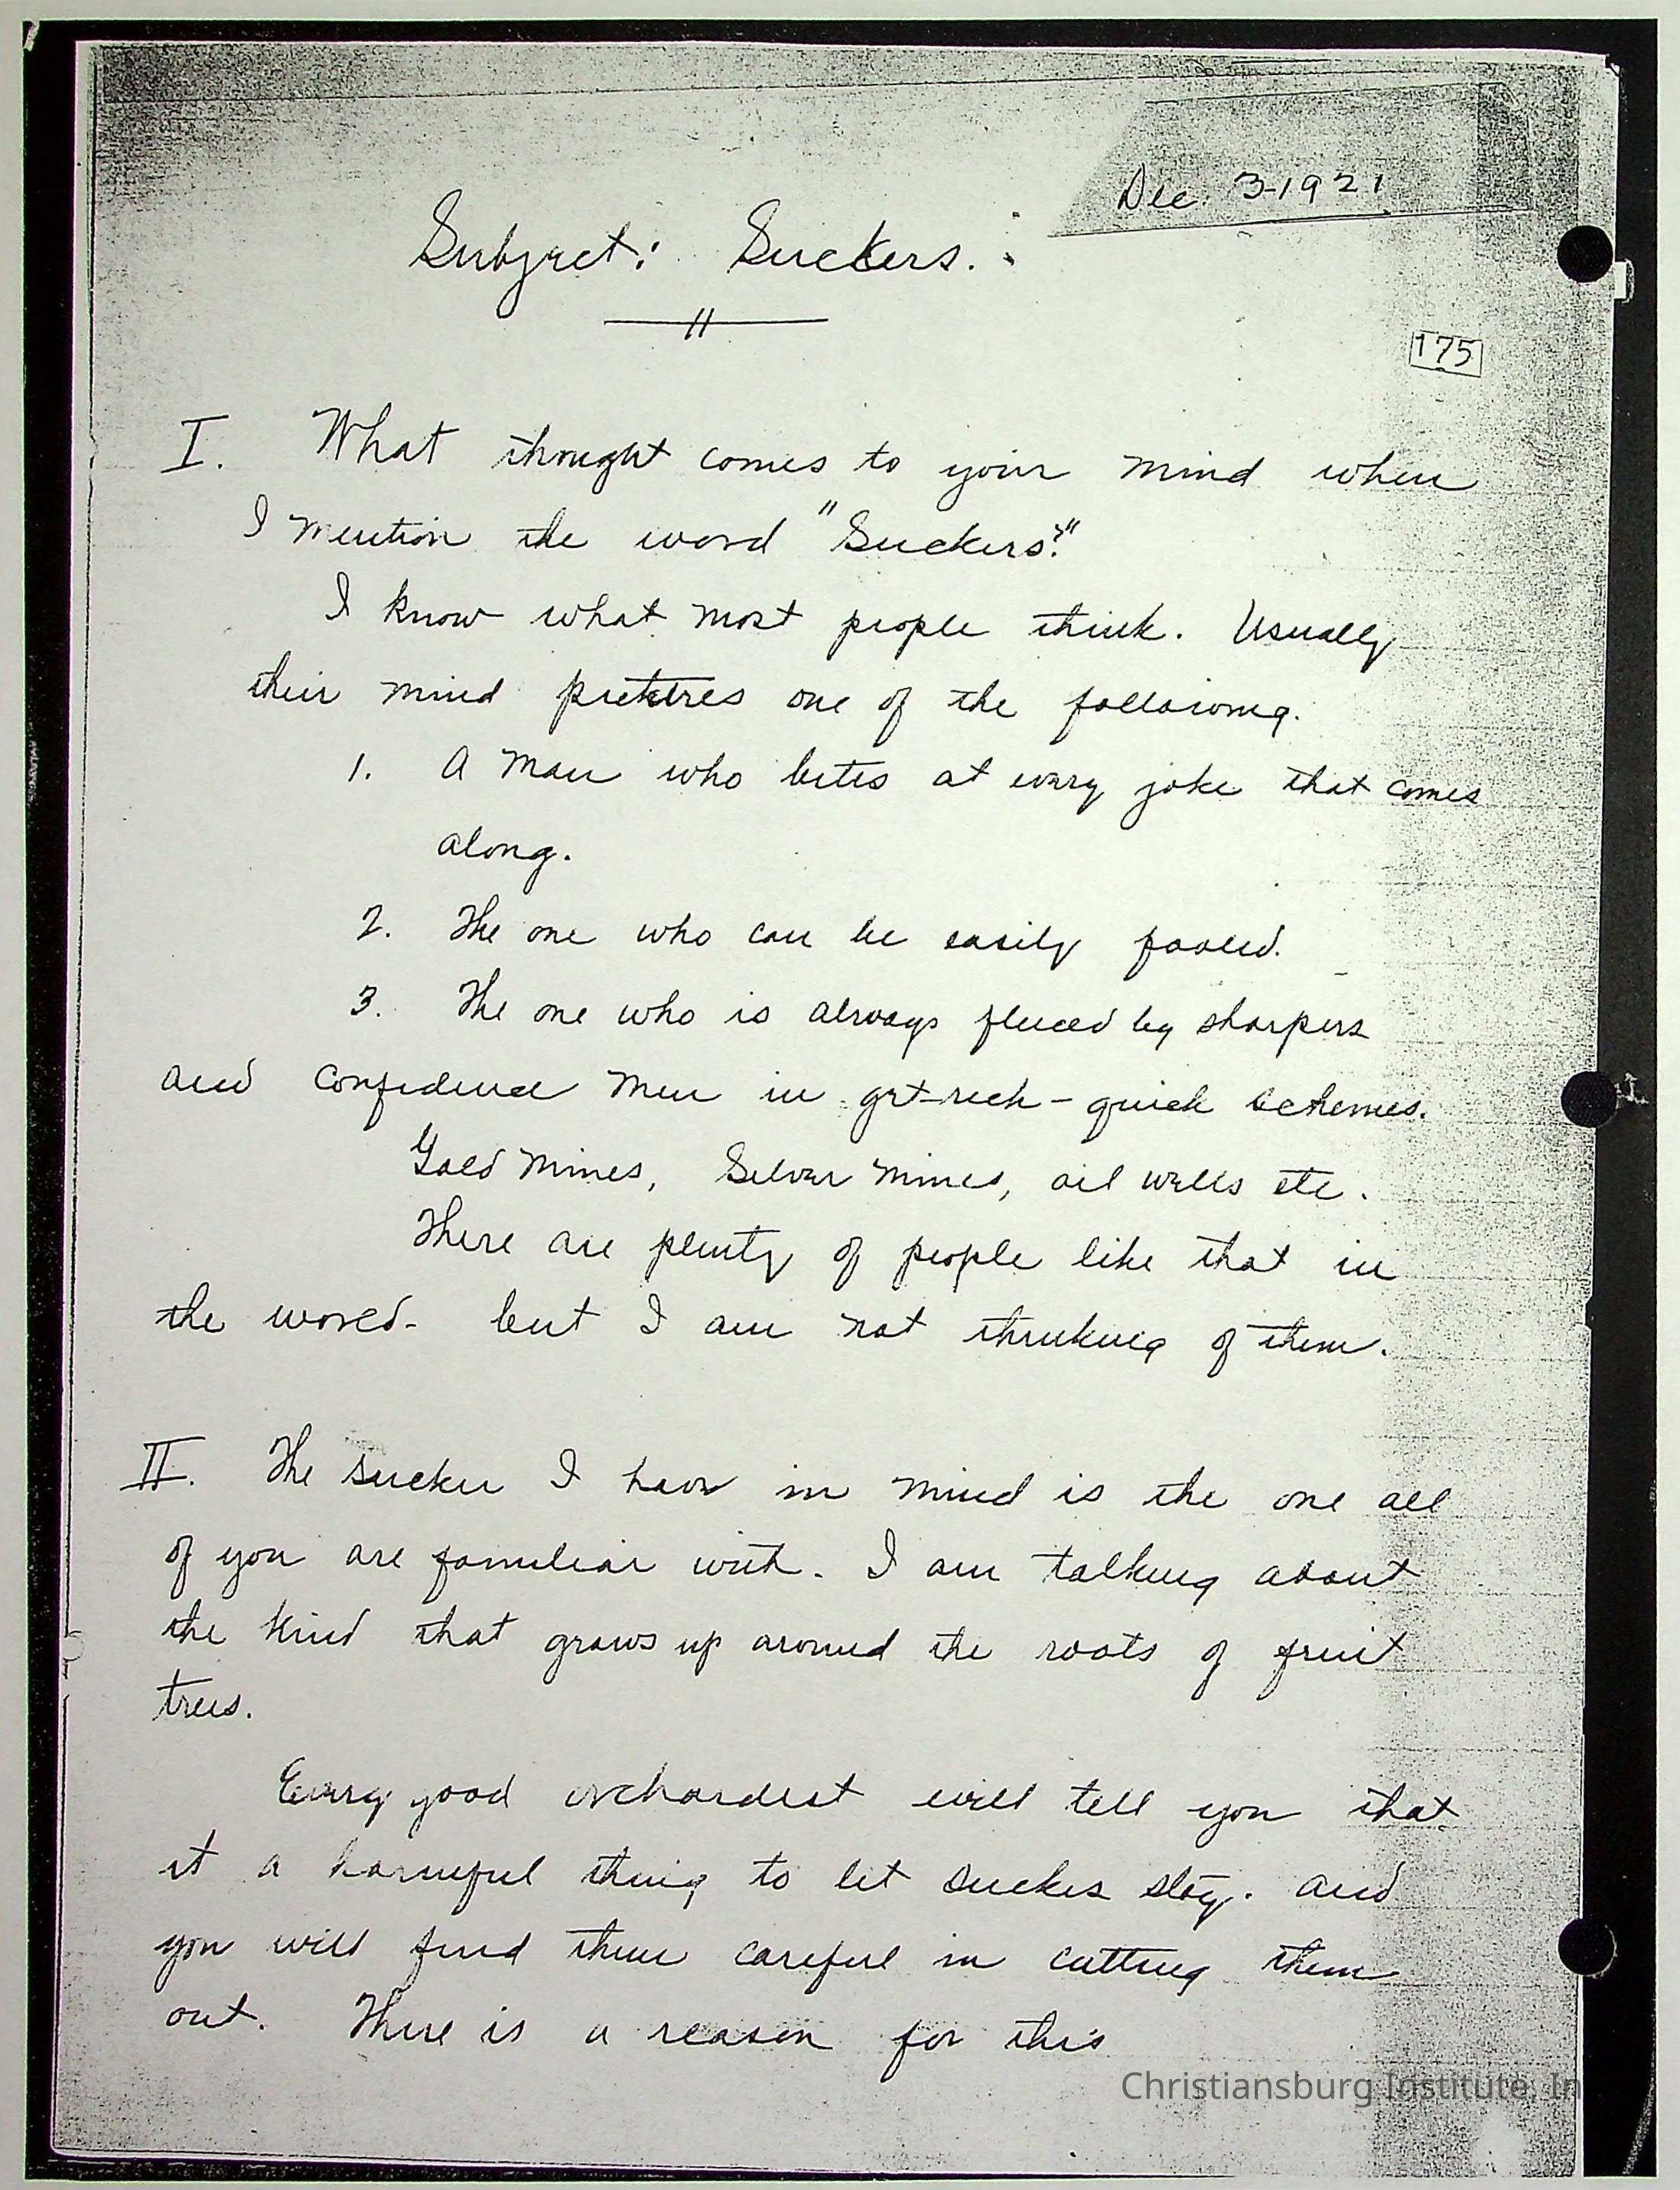 Dec. 3-1921
Subject: Suckers.
175
I. What thought comes to your mind when
I mention the word "Suckers?"
I know what most people think. Usually
their mind pictures one of the following.
1. A man who bites at every joke that comes
along.
2. The one who can be easily fooled.
3. The one who is always fleeced by sharpers
and confidence men in get-rich-quick schemes.
Gold mines, Silver mines, oil wells etc.
There are plenty of people like that in
the world- but I am not thinking of them.
II. The sucker I have in mind is the one all
of you are familiar with. I am talking about
the kind that grows up around the roots of fruit
trees.
Every good orchardist will tell you that
it a harmful thing to let suckes stay. and
you will find them careful in cutting them
out. There is a reason for this
Christiansburg Institute, In